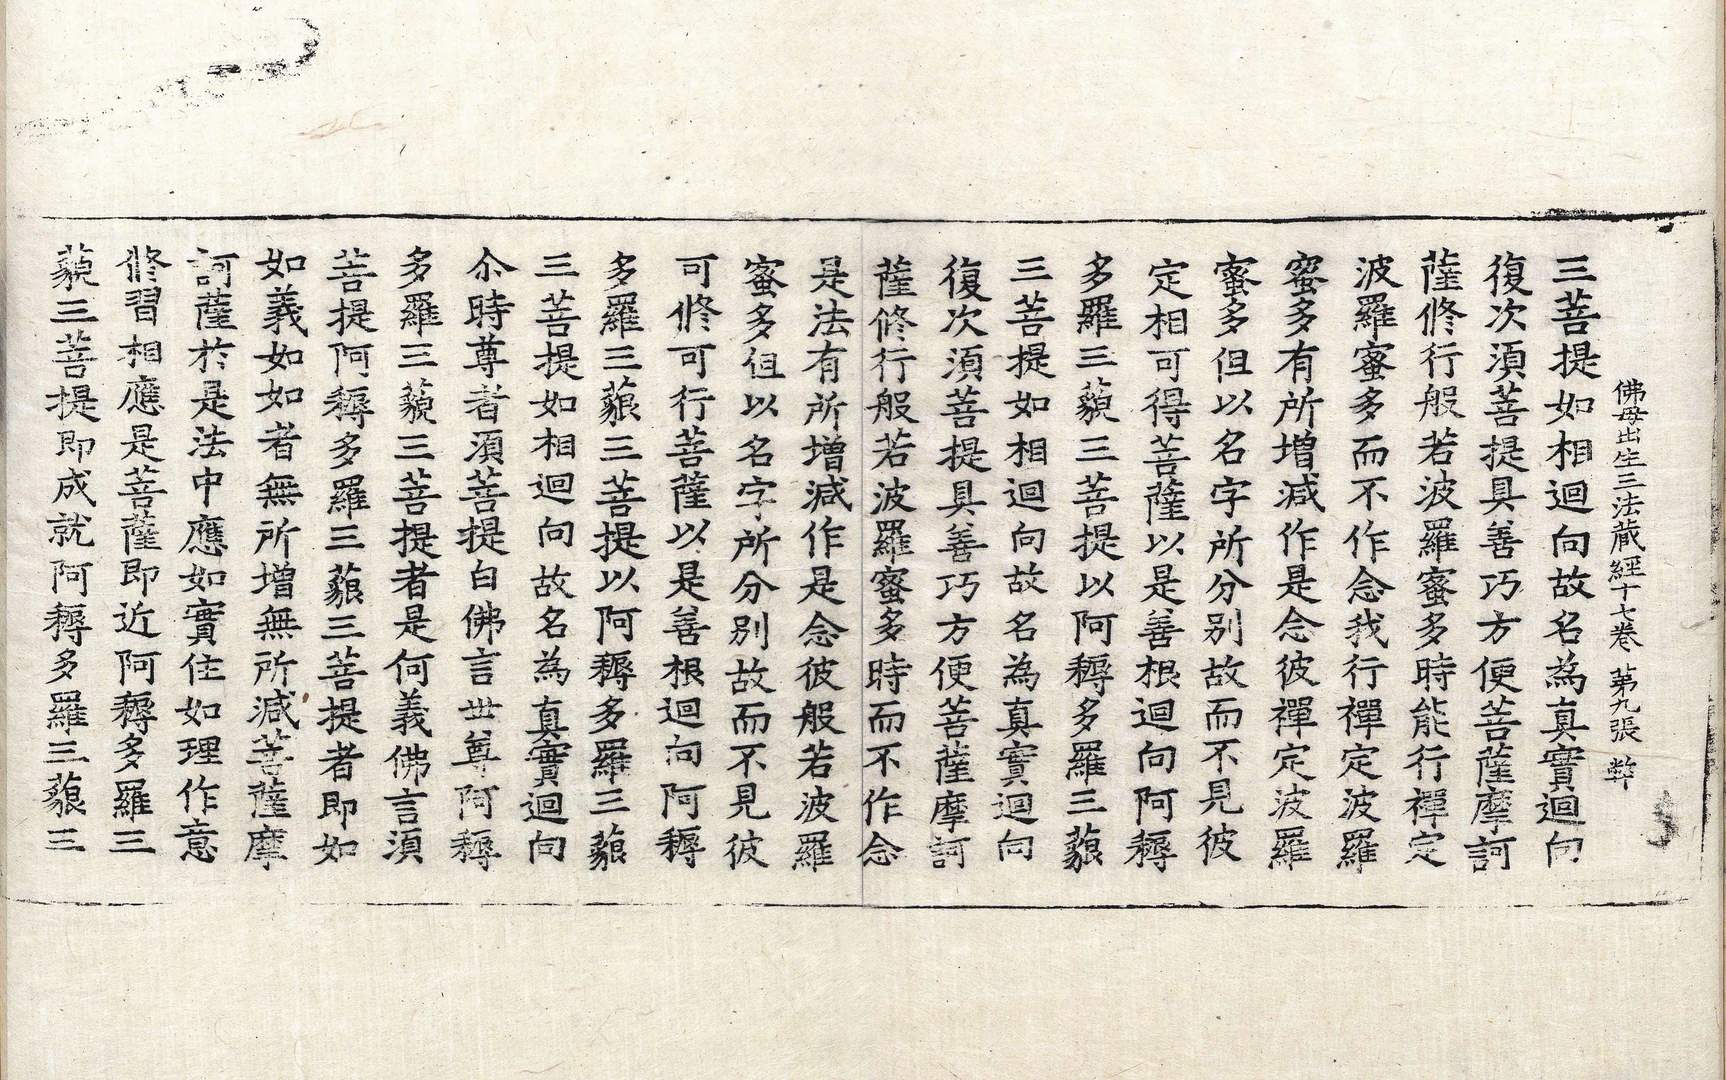 佛母出生三法藏經十七卷 第九張 弊
三菩提如相迴向故名為真實迴向
復次須菩提具善巧方便菩薩摩訶
薩修行般若波羅蜜多時能行禪定
波羅蜜多而不作念我行禪定波羅
蜜多有所增減作是念彼禪定波羅
蜜多但以名字所分別故而不見彼
定相可得菩薩以是善根迴向阿耨
多羅三藐三菩提以阿耨多羅三藐
三菩提如相迴向故名為真實迴向
復次須菩提具善巧方便菩薩摩訶
薩修行般若波羅蜜多時而不作念
是法有所增減作是念彼般若波羅
蜜多但以名字所分別故而不見彼
可修可行菩薩以是善根迴向阿耨
多羅三藐三菩提以阿耨多羅三藐
三菩提如相迴向故名為真實迴向
尒時尊者須菩提白佛言世尊阿耨
多羅三藐三菩提者是何義佛言須
菩提阿耨多羅三藐三菩提者即如
如義如如者無所增無所減菩薩摩
訶薩於是法中應如實住如理作意
修習相應是菩薩即近阿耨多羅三
藐三菩提即成就阿耨多羅三藐三